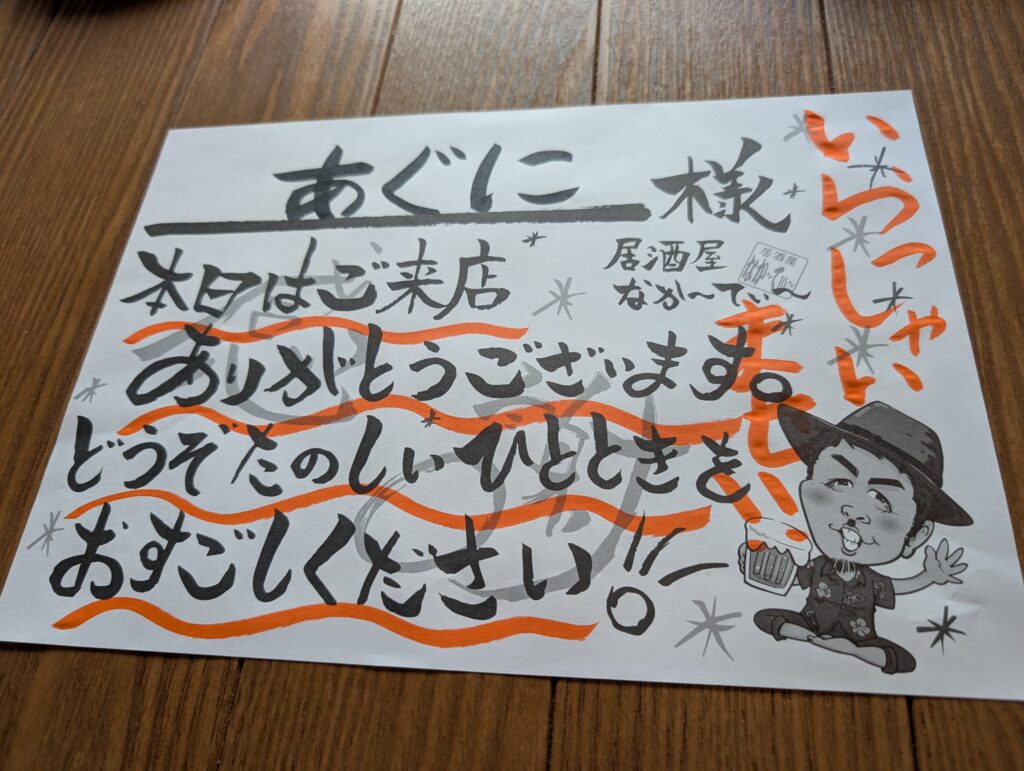 あぐに 様
本日はご来店
ありがとうございます。
どうぞたのしいひとときを
おすごしください!!
居酒屋
なか〜てぃ
居酒屋
なか〜てぃ〜
いらっしゃい
ませい